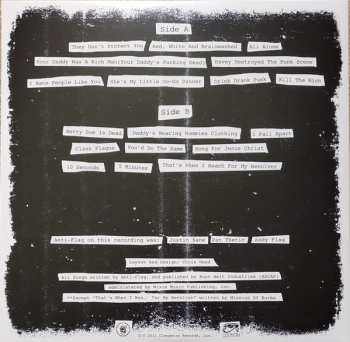 Side A
They Don't Protect You Red, White And Brainwashed All Alone
Your Daddy Was A Rich Man(Your Daddy's Fucking Dead) Davey Destroyed The Punk Scene
I Hate People Like You She's My Little Go-Go Dancer Drink Drank Punk Kill The Rich
Side B
Betty Sue is Dead Daddy's Wearing Mommies Clothing I Fall Apart
Class Plague You'd Do The Same Song For Jesus Christ
10 Seconds 5 Minutes That's When I Reach For My Revolver
Anti-Flag on this recording was: Justin Sane Pat Thetic Andy Flag
Layout and design: Chris Head
All Songs written by Anti-Flag, and published by Rust Belt Industries (ASCAP)
administered by Mixon Music Publishing, Inc.
**Except "That's When I Rea.. For My Revolver" written by Mission Of Burma
Cleopatra Records, Inc.